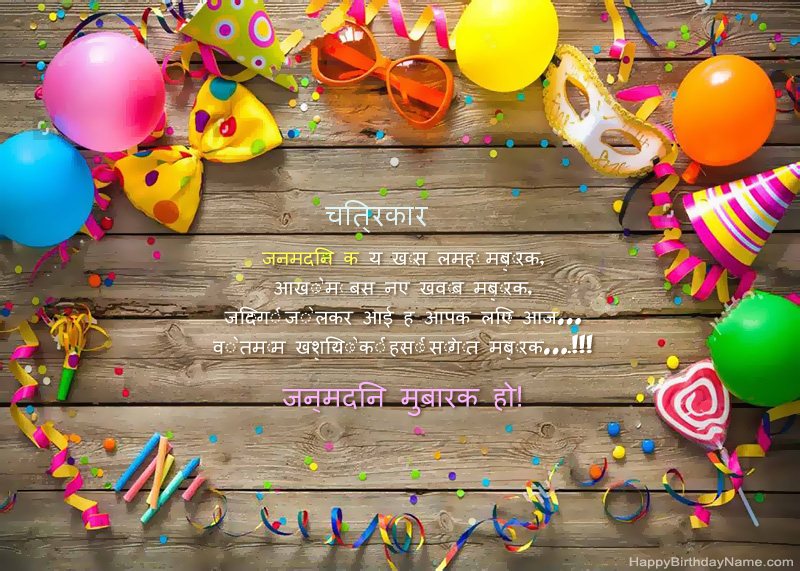 चित्रकार
जनमदिन के ये खास लमहे मुबारक,
आंखों में बसे नए ख्वाब मुबारक,
जिंदगी जो लेकर आई है आपके लिए आज...
वो तमाम खुशियों की हसीं सौगात मुबारक...!!!
जन्मदिन मुबारक हो!
HappyBirthdayName.com